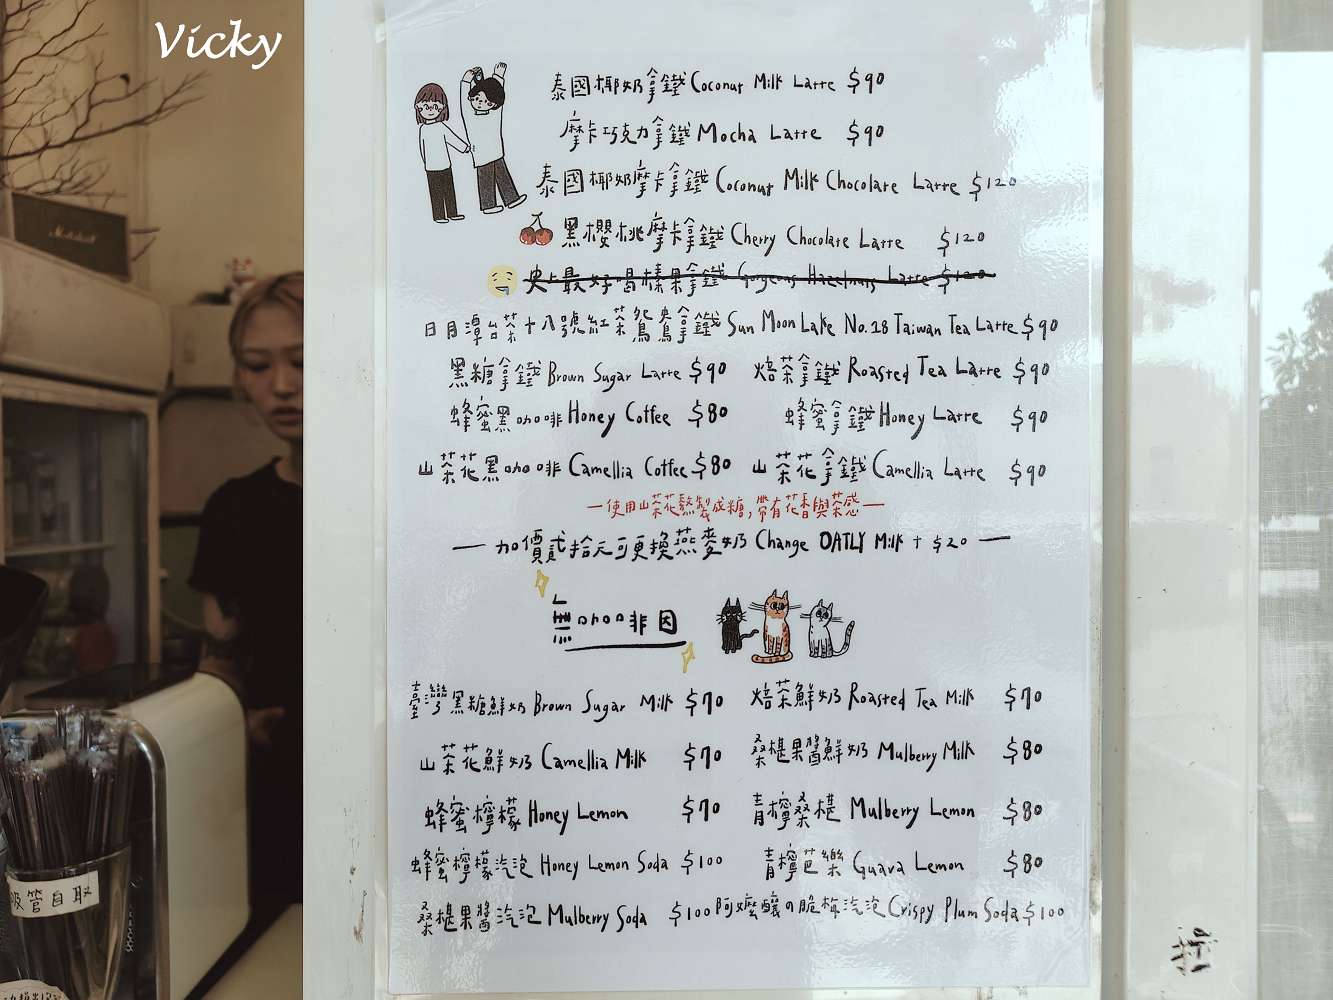 Vicky
泰國椰奶拿鐵 Coconut Milk Latte $90
摩卡巧克力拿鐵 Mocha Latte $90
泰國椰奶摩卡拿鐵 Coconut Milk Chocolate Latte $120
黑櫻桃摩卡拿鐵 Cherry Chocolate Latte $120
史上最好喝榛果拿鐵 Gorgeous Hazelnuts Latte $120
日月潭台茶十八號紅茶鴛鴦拿鐵 Sun Moon Lake No.18 Taiwan Tea Latte $90
黑糖拿鐵 Brown Sugar Latte $90 焙茶拿鐵 Roasted Tea Latte $90
蜂蜜黑咖啡 Honey Coffee $80 蜂蜜拿鐵 Honey Latte $90
山茶花黑咖啡 Camellia Coffee $80 山茶花拿鐵 Camellia Latte $90
—使用山茶花熬製成糖,帶有花香與茶感—
— 加價貳拾元可更換燕麥奶 Change OATLY Milk + $20 —
無咖啡因
臺灣黑糖鮮奶 Brown Sugar Milk $70 焙茶鮮奶 Roasted Tea Milk $70
山茶花鮮奶 Camellia Milk $70 桑椹果醬鮮奶 Mulberry Milk $80
蜂蜜檸檬 Honey Lemon $70 青檸桑椹 Mulberry Lemon $80
蜂蜜檸檬汽泡 Honey Lemon Soda $100 青檸芭樂 Guava Lemon $80
桑椹果醬汽泡 Mulberry Soda $100 阿嬤釀の脆梅汽泡 Crispy Plum Soda $100
吸管自取